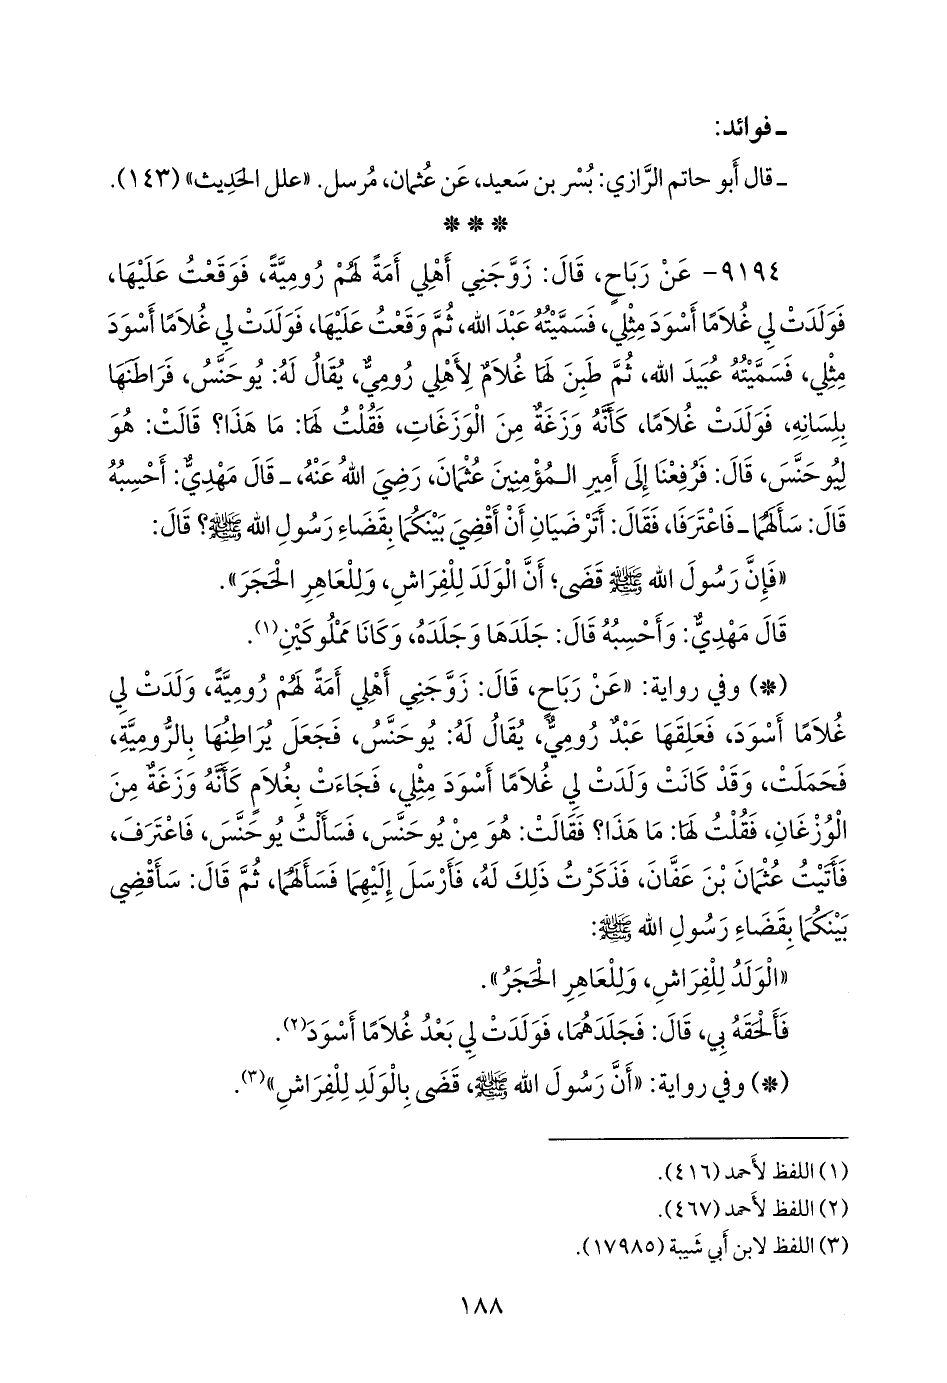 ـ فوائد:
ـ قال أَبو حاتم الرَّازي: بُسْر بن سَعيد، عَن عُثمان، مُرسل. «علل الحَدِيث» (١٤٣).
* * *
٩١٩٤- عَنْ رَبَاحٍ، قَالَ: زَوَّجَنِي أَهْلِي أَمَةً لَهُمْ رُومِيَّةً، فَوَقَعْتُ عَلَيْهَا،
فَوَلَدَتْ لِي غُلاَمًا أَسْوَدَ مِثْلِي، فَسَمَّيْتُهُ عَبْدَ الله، ثُمَّ وَقَعْتُ عَلَيْهَا، فَوَلَدَتْ لِي غُلاَمًا أَسْوَدَ
مِثْلِي، فَسَمَّيْتُهُ عُبَيدَ الله، ثُمَّ طَبِنَ لَهَا غُلاَمٌ لِأَهْلِي رُومِيٌّ، يُقَالُ لَهُ: يُوحَنَّسُ، فَرَاطَنَهَا
بِلِسَانِهِ، فَوَلَدَتْ غُلاَمًا، كَأَنَّهُ وَزَغَةٌ مِنَ الْوَزَغَاتِ، فَقُلْتُ لَهَا: مَا هَذَا؟ قَالَتْ: هُوَ
لِيُوحَنَّسَ، قَالَ: فَرُفِعْنَا إِلَى أَمِيرِ الـمُؤْمِنِينَ عُثْمَانَ، رَضِيَ اللهُ عَنْهُ، ـ قَالَ مَهْدِيٌّ: أَحْسِبُهُ
قَالَ: سَأَلَهُمَا ـ فَاعْتَرَفَا، فَقَالَ: أَتَرْضَيَانِ أَنْ أَقْضِيَ بَيْنَكُمَا بِقَضَاءِ رَسُولِ الله ﷺ؟ قَالَ:
«فَإِنَّ رَسُولَ الله ﷺ قَضَى؛ أَنَّ الْوَلَدَ لِلْفِرَاشِ، وَلِلْعَاهِرِ الْحَجَرَ».
قَالَ مَهْدِيٌّ: وَأَحْسِبُهُ قَالَ: جَلَدَهَا وَجَلَدَهُ، وَكَانَا مَمْلُوكَيْنِ(١).
(*) وفي رواية: «عَنْ رَبَاحٍ، قَالَ: زَوَّجَنِي أَهْلِي أَمَةً لَهُمْ رُومِيَّةً، وَلَدَتْ لِي
غُلاَمًا أَسْوَدَ، فَعَلِقَهَا عَبْدٌ رُومِيٌّ، يُقَالُ لَهُ: يُوحَنَّسُ، فَجَعَلَ يُرَاطِنُهَا بِالرُّومِيَّةِ،
فَحَمَلَتْ، وَقَدْ كَانَتْ وَلَدَتْ لِي غُلاَمًا أَسْوَدَ مِثْلِي، فَجَاءَتْ بِغُلاَمٍ كَأَنَّهُ وَزَغَةٌ مِنَ
الْوُزْغَانِ، فَقُلْتُ لَهَا: مَا هَذَا؟ فَقَالَتْ: هُوَ مِنْ يُوحَنَّسَ، فَسَأَلْتُ يُوحَنَّسَ، فَاعْتَرَفَ،
فَأَتَيْتُ عُثْمَانَ بْنَ عَفَّانَ، فَذَكَرْتُ ذَلِكَ لَهُ، فَأَرْسَلَ إِلَيْهِمَا فَسَأَلَهُمَا، ثُمَّ قَالَ: سَأَقْضِي
بَيْنَكُمَا بِقَضَاءِ رَسُولِ الله ﷺ:
«الْوَلَدُ لِلْفِرَاشِ، وَلِلْعَاهِرِ الْحَجَرُ».
فَأَلْحَقَهُ بِي، قَالَ: فَجَلَدَهُمَا، فَوَلَدَتْ لِي بَعْدُ غُلاَمًا أَسْوَدَ(٢).
(*) وفي رواية: «أَنَّ رَسُولَ الله ﷺ، قَضَى بِالْوَلَدِ لِلْفِرَاشِ»(٣).
(١) اللفظ لأَحمد (٤١٦).
(٢) اللفظ لأَحمد (٤٦٧).
(٣) اللفظ لابن أَبي شَيبة (١٧٩٨٥).
١٨٨